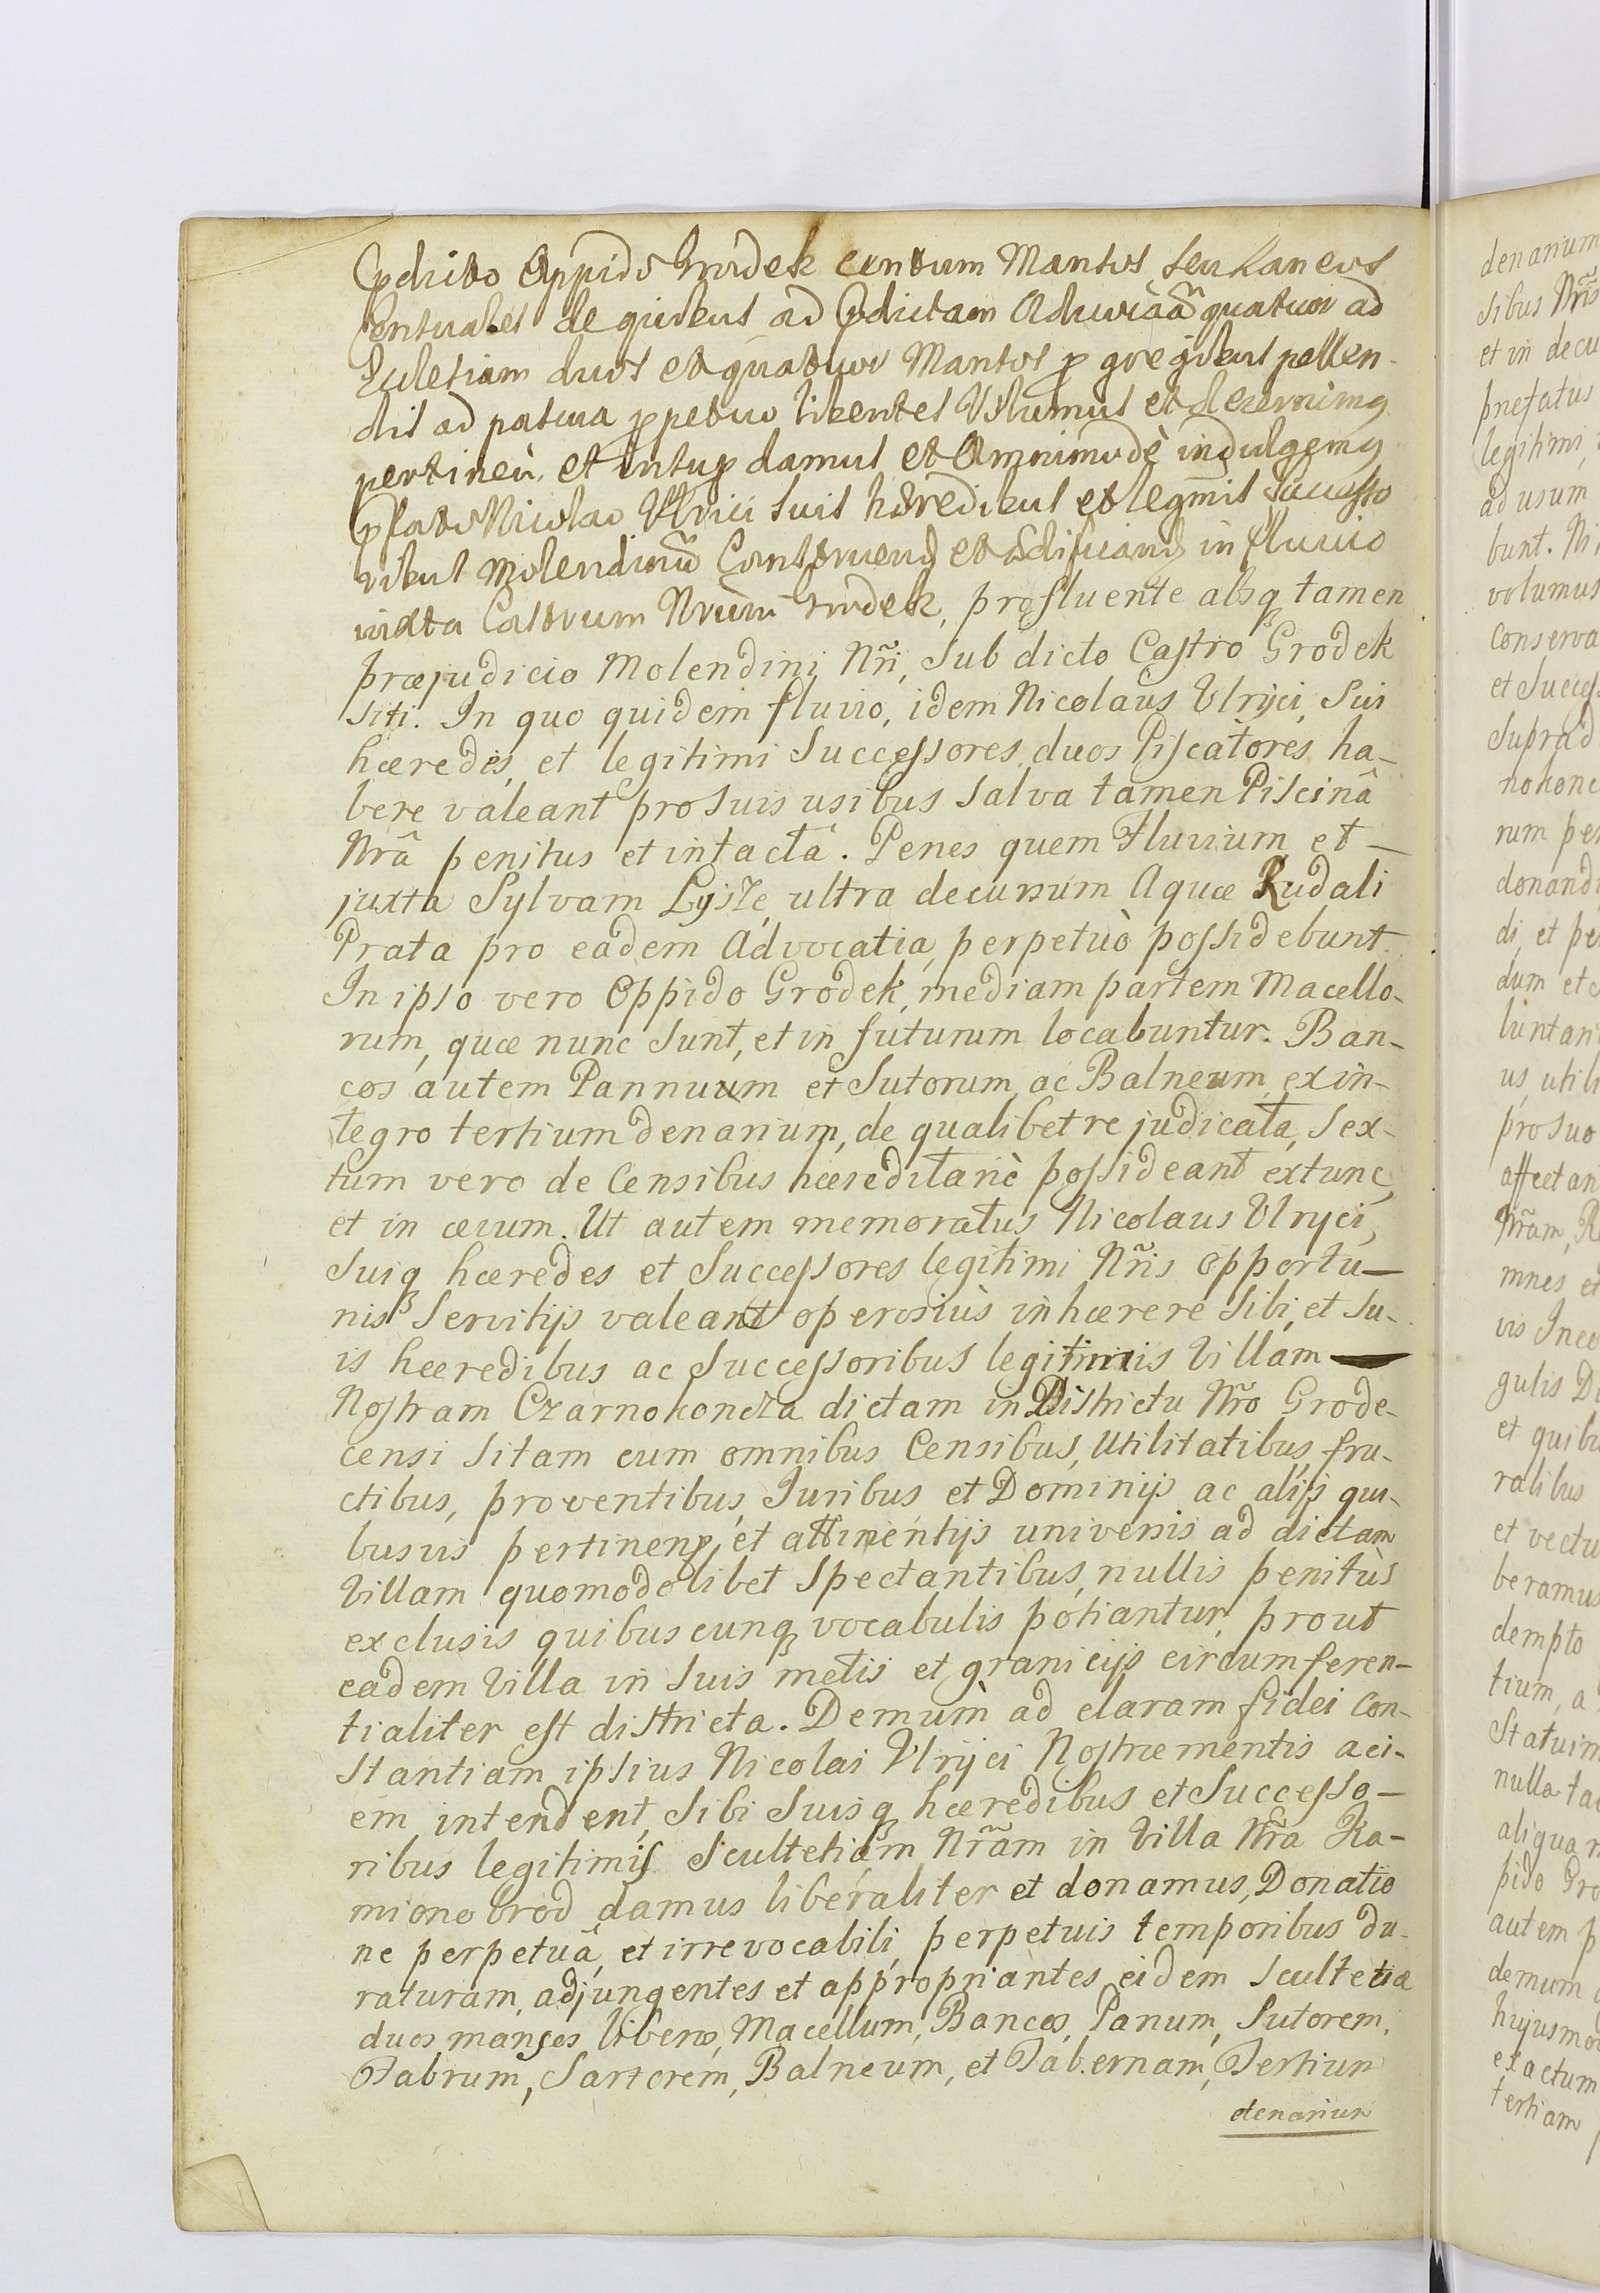 Pdicto Oppido Grodek centum Mansos seu Laneos
Censuales de quibus ad Pdictam Advocaã quatuor ad
Eccletiam duos et quatuor Mansos p gregibus pellen-
dis ad pascua ppetuo libentes Volumus et decernimq
pertinere. et insup damus et Omnimodè indulgemq
Pfato Nicolao Ulrici suis hæredibus et legmis Successo
ribus Molendinũ Construend et ædificand in fluvio
iuxta Castrum Nrum Grodek, profluente absq tamen
præjudicio Molendini Nr̃i, sub dicto Castro Grodek
siti. In quo quidem fluvio, idem Nicolaus Ulryci, sui
hæredes, et legitimi Successores, duos Piscatores, ha-
bere valeant pro suis usibus salva tamen Piscinâ
Nrâ penitus et intactâ. Penes quem Fluvium et —
juxta Sylvam Lyszé, ultra decursum Aquæ Rudali
Prata pro eadem Advocatia, perpetuò possidebunt.
In ipso vero Oppido Grodek, mediam partem Macello-
rum, quæ nunc sunt, et in futurum locabuntur. Ban-
cos autem Pannuum et Sutorum, ac Balneum ex in-
tegro tertium denarium, de qualibet re judicata, sex-
tum vero de Censibus hæreditariè possideant extunc,
et in ævum. Ut autem memoratus Nicolaus Ulryci,
suiq hæredes et Successores legitimi Nr̃is opportu—
nis servitijs valeant operosiùs inhærere sibi, et su-
is hæredibus ac Successoribus legitimis Villam —
Nostram Czarnokoncza dictam in Districtu Nr̃o Grode-
censi sitam cum omnibus Censibus, Utilitatibus, fru-
ctibus, proventibus, Juribus et Dominijs ac alijs qui-
busvis pertinens, et attinentijs universis ad dictam
Villam quomodolibet spectantibus, nullis penitùs
exclusis quibuscunq vocabulis potiantur, prout
eadem Villa in suis metis et granicijs circumferen-
tialiter est districta. Demum ad claram fidei con-
stantiam ipsius Nicolai Ulryci Nostræ mentis aci-
em intendent, sibi suisq hæredibus et Successo—
ribus legitimis Scultetiam Nr̃am in Villa Nr̃a Ka-
mionobrod damus liberaliter et donamus, Donatio
ne perpetuâ, et irrevocabili, perpetuis temporibus du-
raturam, adjungentes et appropriantes eidem Scultetiæ
duos mansos liberos, Macellum, Bancos, Panum, Sutorem,
Fabrum, Sartorem, Balneum, et Tabernam, Tertium
denarium
denarium
sibus Nr̃is
et in decu
præfatus
legitimi,
ad usum
bunt. Ni
volumus
conserva
et Success
suprad
nokonc
rum per
donandi
di, et pe
dum et c
luntari
us, utili
pro suo
affectan
Nr̃am, R
mnes et
vis Inco
gulis Di
et quibu
ralibus
et vectu
beramus
dempto
tium, a
Statuim
nulla ta
aliquam
pido Gro
autem p
demum
hujusmo
exactum
tertiam